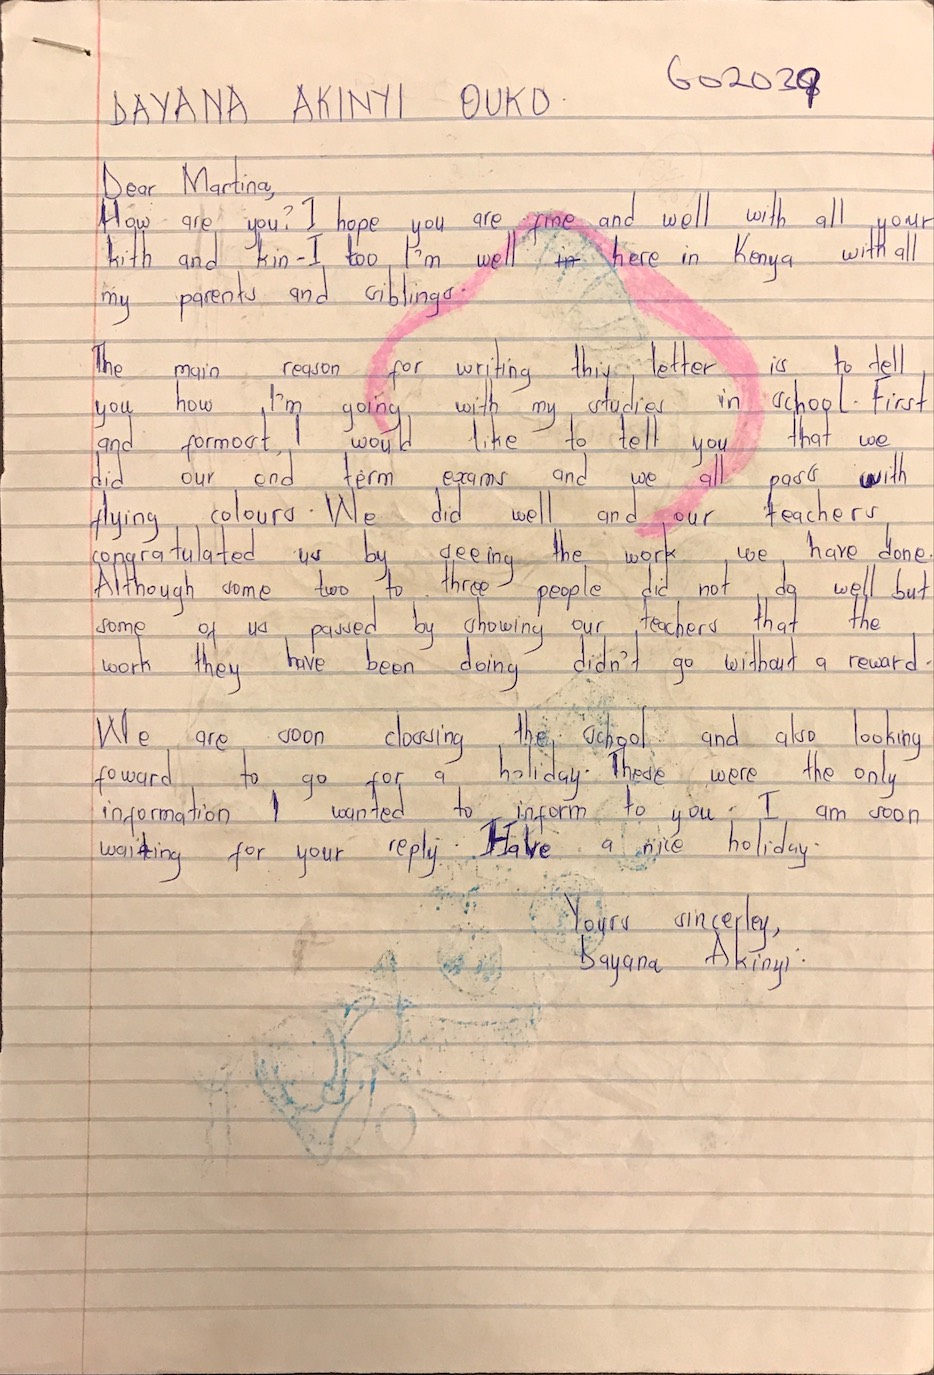 602039
DAYANA AKINYI OUKO.
Dear Martina,
How are you? I hope you are fine and well with all your
kith and kin - I too I'm well here in Kenya with all
my parents and siblings.
The main reason for writing this letter is to tell
you how I'm going with my studies in school. First
and formost, I would like to tell you that we
did our end term exams and we all pass with
flying colours. We did well and our teachers
congratulated us by seeing the work we have done.
Although some two to three people did not do well but
some of us passed by showing our teachers that the
work they have been doing didn't go without a reward.
We are soon clossing the school and also looking
foward to go for a holiday. These were the only
information I wanted to inform to you. I am soon
waiting for your reply. Have a nice holiday.
Yours sincerley,
Dayana Akinyi.